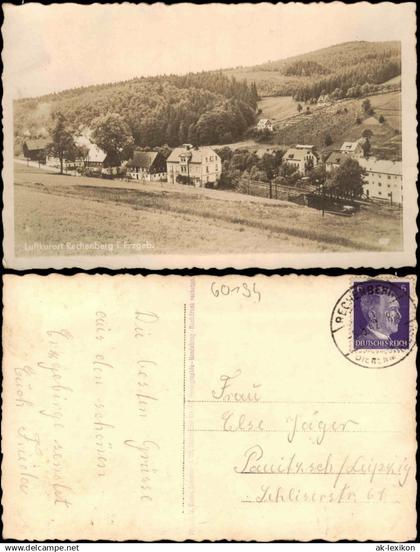 Luftkurort Rechenberg i. Erzgeb.
60134
Die besten Grüsse
aus dem schönen
Erzgebirge sendet
Euch Frieda
Frau
Else Jäger
Panitzsch/Leipzig
Schliserstr 61
RECHENBERG
DEUTSCHES REICH
6
© ak-ansichtskarten.de
www.ak-lexikon.de